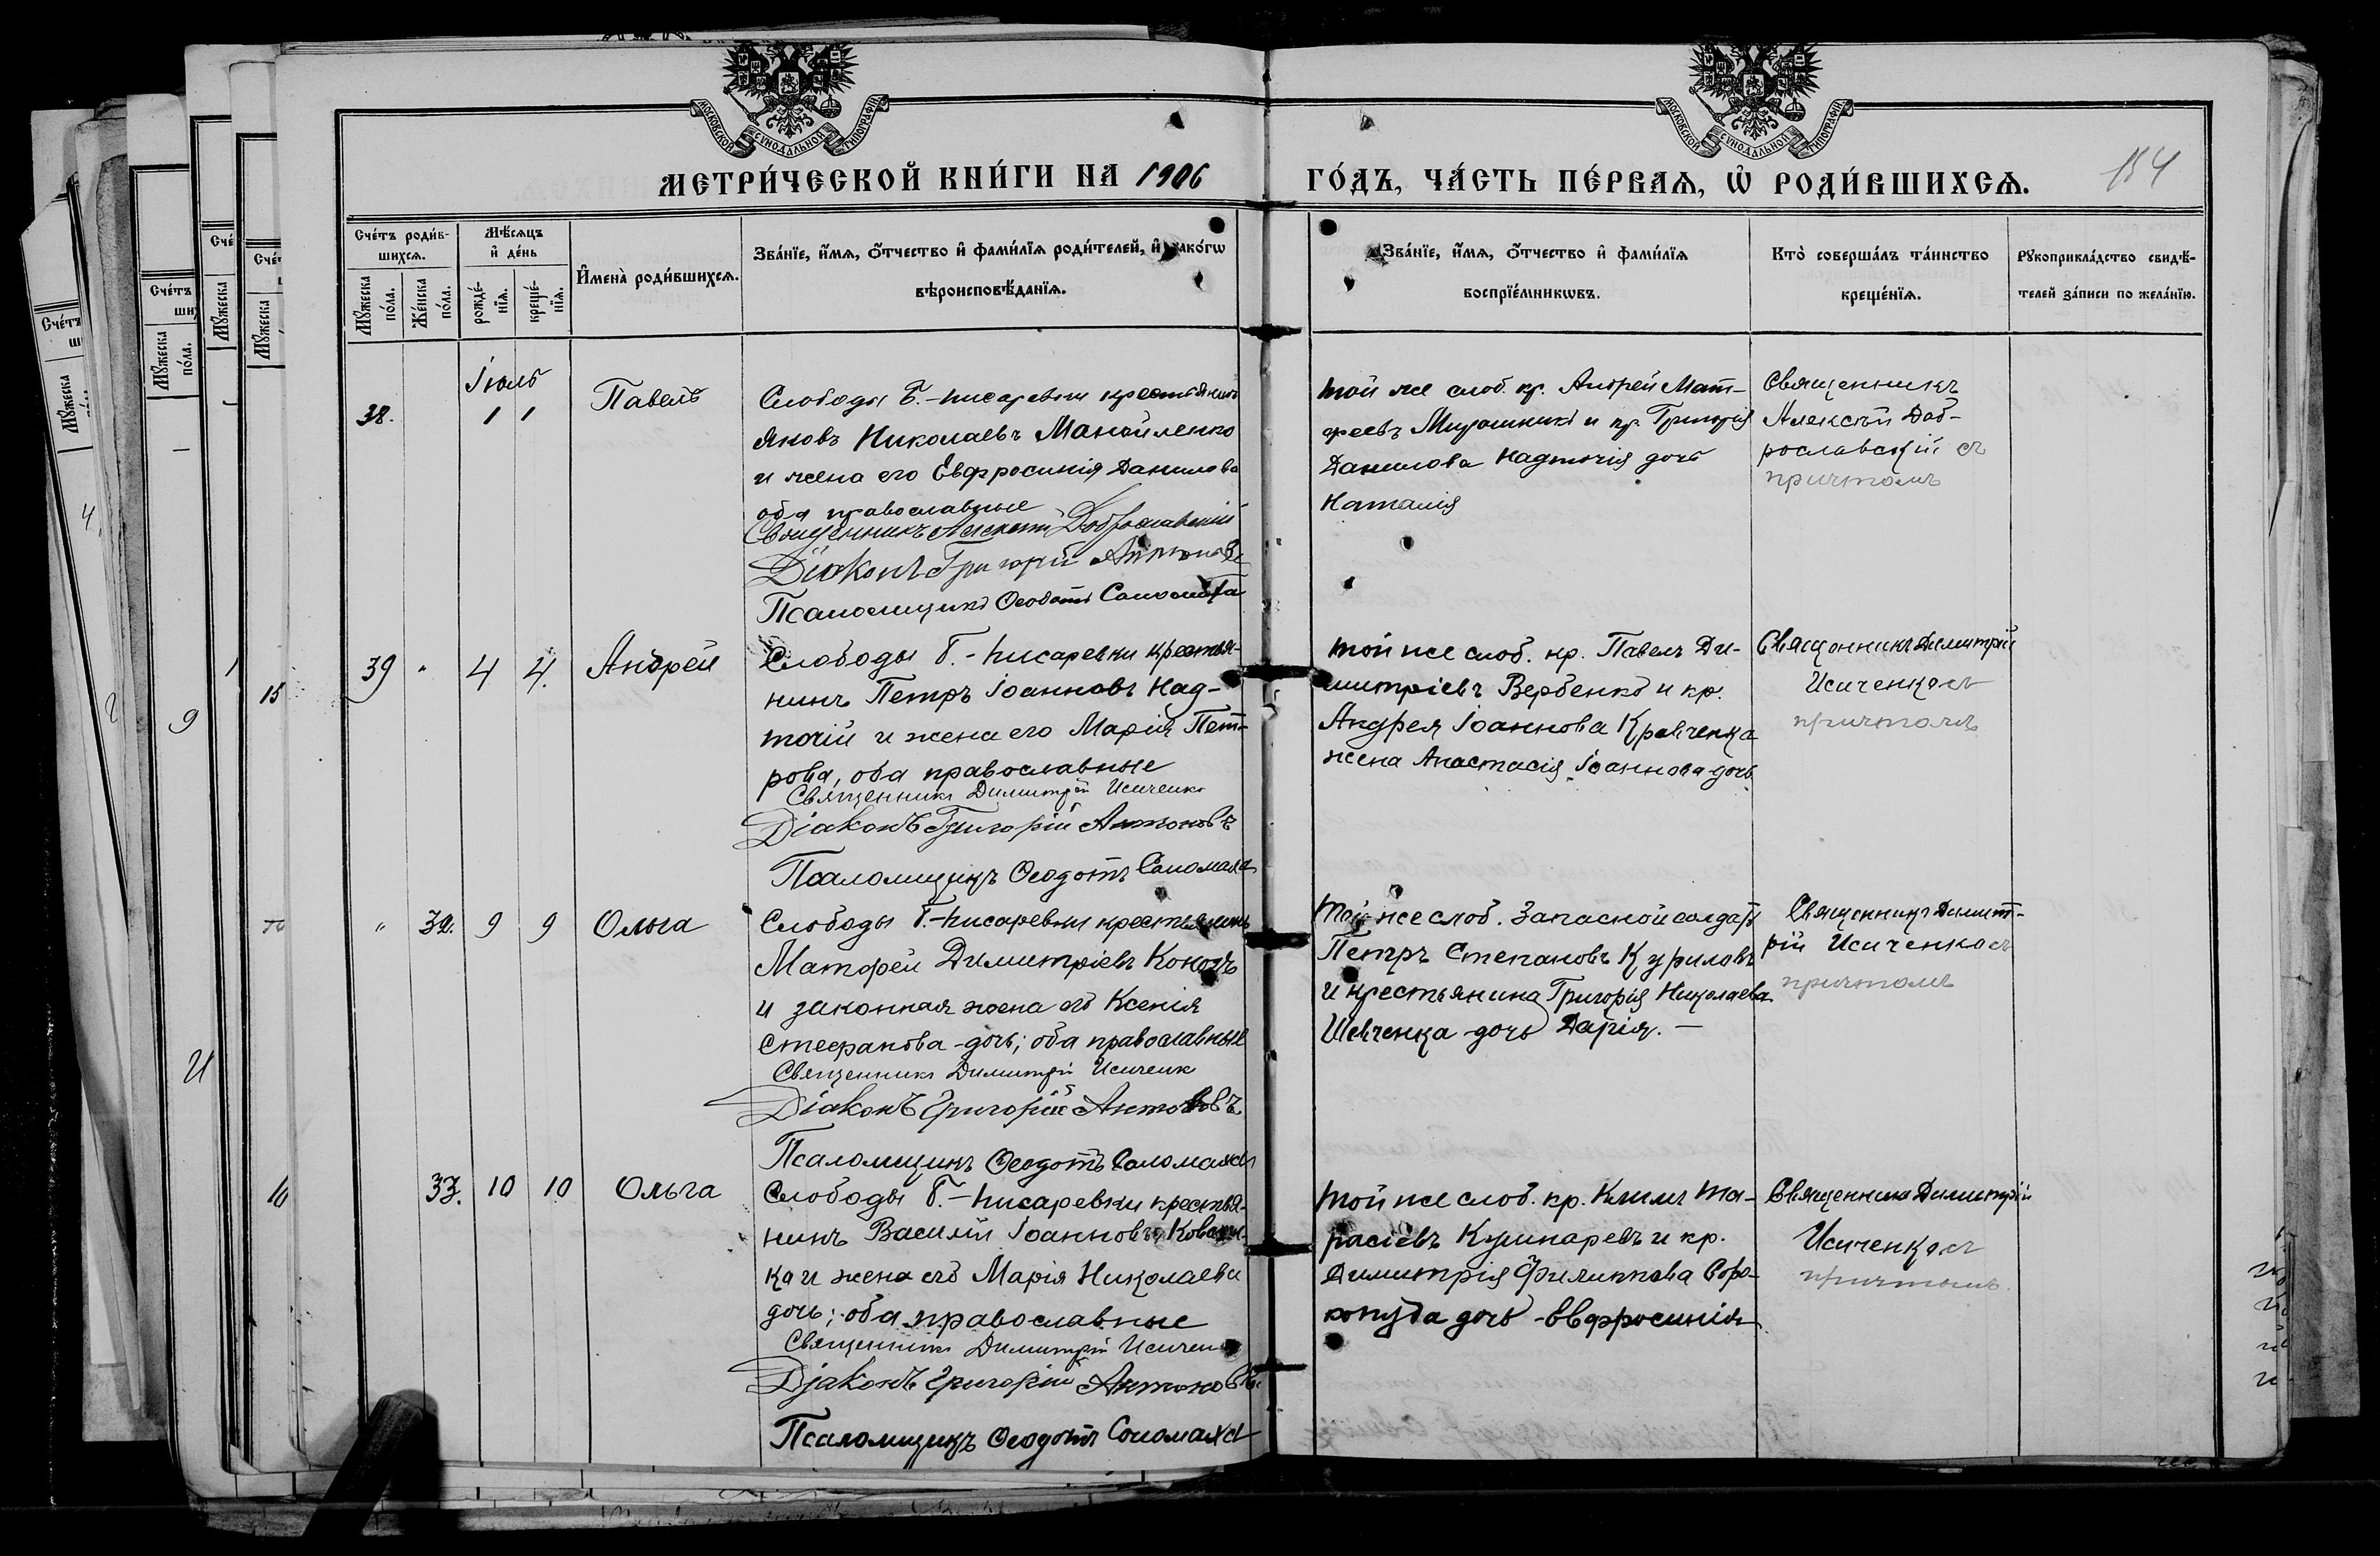 МОСКОВСКОЙ СѴНОДАЛЬНОЙ ТИПОГРАФІИ
МОСКОВСКОЙ СѴНОДАЛЬНОЙ ТИПОГРАФІИ
МЕТРИ́ЧЕСКОЙ КНИ́ГИ НА 1906
ГО́ДЪ, ЧА́СТЬ ПЕ́РВАѦ, Ѡ҆ РОДИ́ВШИХСѦ.
154
Сче́тъ роди́в-
шихсѧ.
Мꙋжеска по́ла.
Же́нска по́ла.
Мѣ́сѧцъ
и҆ де́нь
рожде́-
нїѧ.
креще́-
нїѧ.
И҆мена̀ роди́вшихсѧ.
Зва́нїе, и҆́мѧ, ѻ҆́тчество и҆ фами́лїѧ роди́телей, и҆ како́гѡ
вѣроисповѣ́данїѧ.
Зва́нїе, и҆́мѧ, ѻ҆́тчество и҆ фами́лїѧ
воспрїе́мникѡвъ.
Кто̀ соверша́лъ та́инство
креще́нїѧ.
Рꙋкоприкла́дство свидѣ́-
телей за́писи по жела́нїю.
Іюль
38.
1 1
Павелъ
Слободы Б.-Писаревки крестьянинъ
Яковъ Николаевъ Манойленко
и жена его Евфросинія Данилова
оба православные
Священникъ Алексій Доброславскій
Діаконъ Григорій Антоновъ
Псаломщикъ Ѳеодотъ Соломаха
Той же слоб. кр. Андрей Мат-
феевъ Мирошникъ и кр. Григорія
Данилова Надточія дочь
Наталія
Священникъ
Алексѣй Доб-
рославскій съ
причтомъ
39 " 4 4.
Андрей
Слободы Б.-Писаревки крестья-
нинъ Петръ Іоанновъ Над-
точій и жена его Марія Пет-
рова, оба православные
Священникъ Димитрій Исиченко
Діаконъ Григорій Антоновъ
Псаломщикъ Ѳеодотъ Соломаха
Той же слоб. кр. Павелъ Ди-
митріевъ Вербенко и кр.
Андрея Іоаннова Кравченка
жена Анастасія Іоаннова дочь
Священникъ Димитрій
Исиченко съ
причтомъ
" 32. 9 9
Ольга
Слободы Б.-Писаревки крестьянинъ
Матфей Димитріевъ
и законная жена его Ксенія
Стефанова дочь; оба православные
Священникъ Димитрій Исиченк
Діаконъ Григорій Антоновъ
Псаломщикъ Ѳеодотъ Соломаха
Той же слоб. Запасной солдатъ
Петръ Степановъ Куриловъ
и крестьянина Григорія Николаева
Шевченка дочь Дарія. —
Священникъ Димит-
рій Исиченко съ
причтомъ
33. 10 10
Ольга
Слободы Б.-Писаревки крестья-
нинъ Василій Іоанновъ
ка и жена его Марія Николаева
дочь; оба православные
Священникъ Димитрій Исиченко
Діаконъ Григорій Антоновъ
Псаломщикъ Ѳеодотъ Соломаха
Той же слоб. кр. Климъ Та-
расіевъ Кушнаревъ и кр.
Димитрія Филиппова Соро-
копуда дочь - Евфросинія
Священникъ Димитрій
Исиченко съ
причтомъ